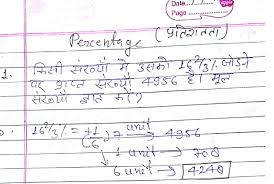 Date.../...
Page
Percentage (प्रतिशतता)
1. किसी संख्या में उसका 16 2/3 % जोड़ने
पर प्राप्त संख्या 4956 है। मूल
संख्या ज्ञात करो?
16 2/3 % = +1/6 ) 7 unit → 4956
1 unit → 708
6 unit → 4248